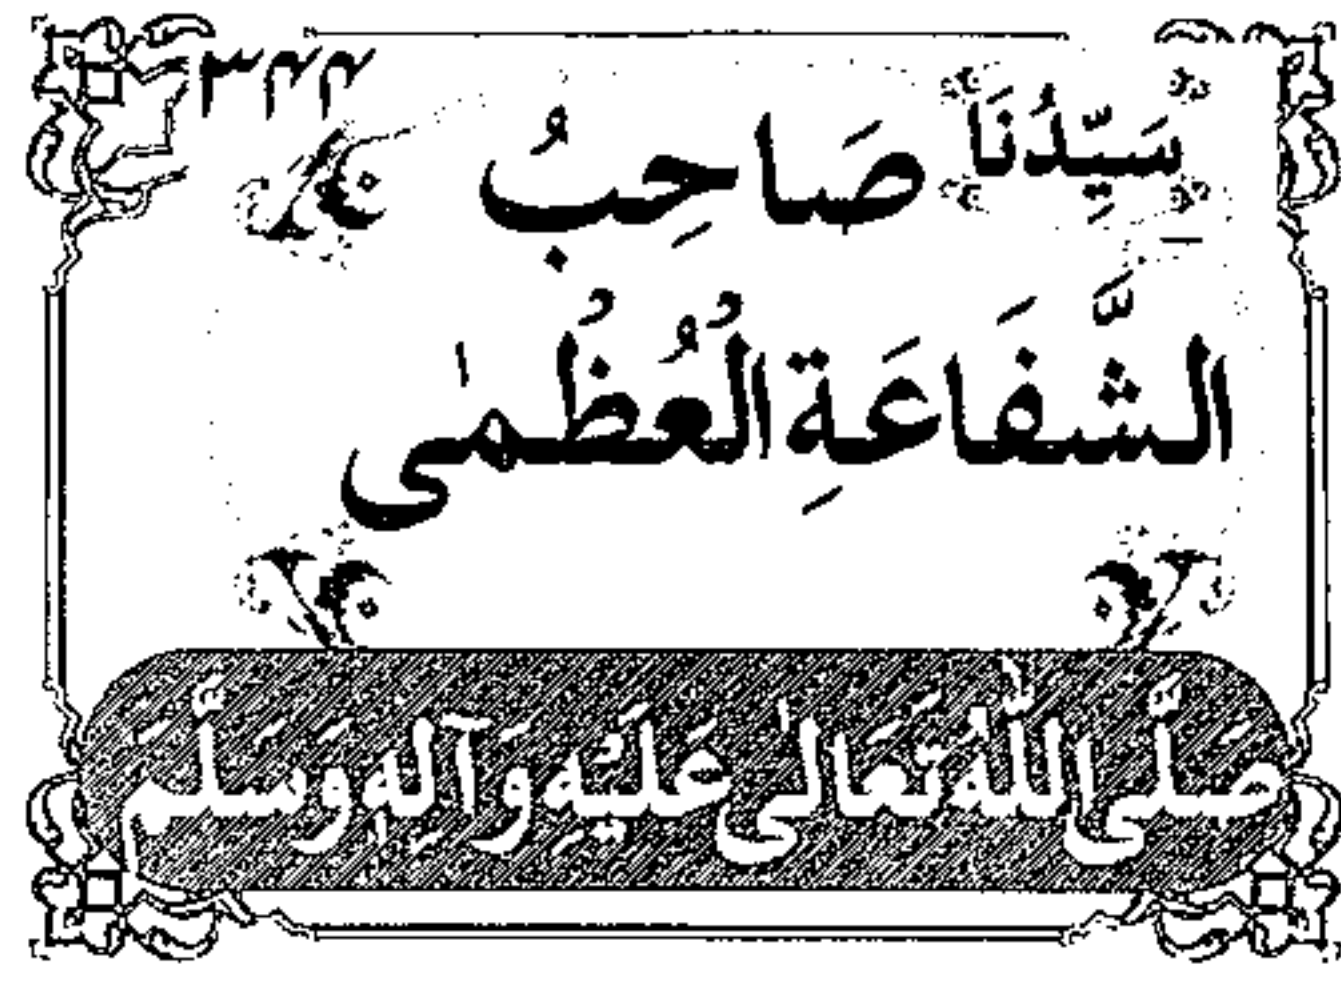 ٣٢٢
سَيِّدُنَا صَاحِبُ
الشَّفَاعَةِ الْعُظْمٰى
صَلَّى اللّٰهُ تَعَالٰى عَلَيْهِ وَآلِهٖ وَسَلَّمَ